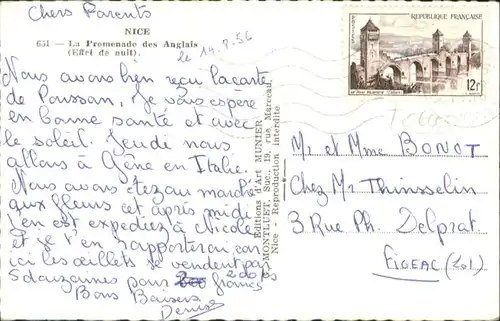 Chers Parents
NICE
651 — La Promenade des Anglais
(Effet de nuit).
le 14.8.56
Nous avons bien reçu la carte
de Poussan, Je vous espère
en bonne santé et avec
le soleil. Jeudi nous
allons à Gêne en Italie.
Nous avons été au marché
aux fleurs cet après midi
j'en ai expediez à Nicole
et je t'en rapporterai car
ici les œillets se vendent par
5 douzaines pour 200 francs
Bons Baisers
Denise
Editions d'Art MUNIER
MONTLUET, Suc., 19, rue Marceau
Nice - Reproduction interdite
REPUBLIQUE FRANÇAISE
12f
Mr et Mme BONOT
Chez Mr Thinsselin
3 Rue Ph. Delprat
FIGEAC (Lot)